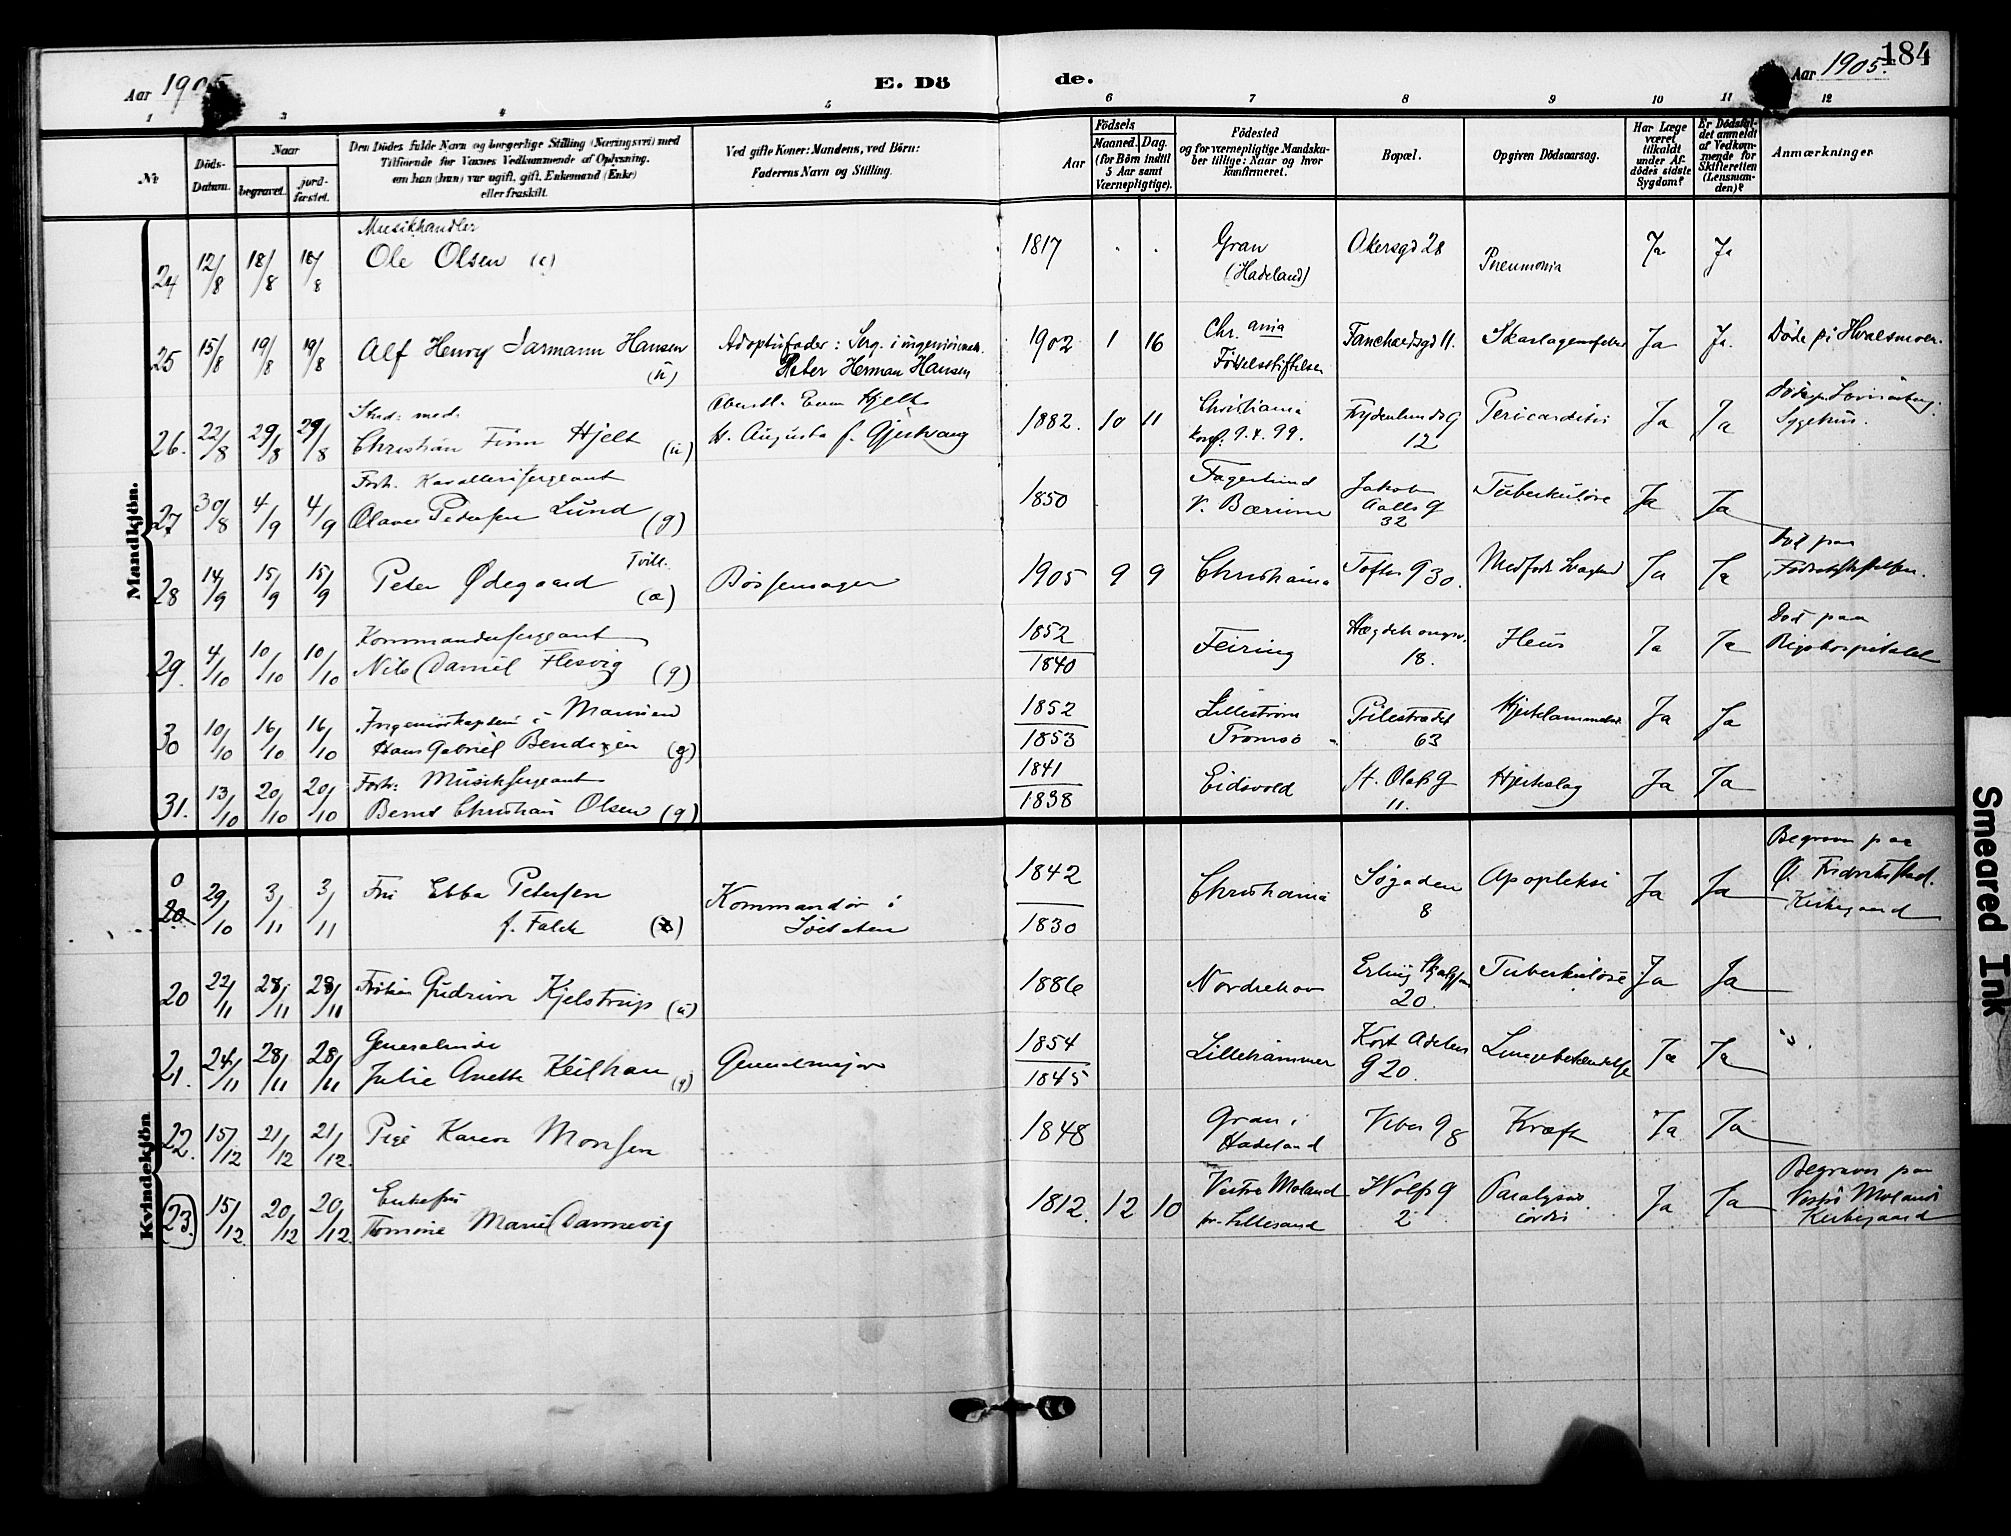 184
Aar 1905
E. Dö de.
Aar 1905.
1 3 4 5 6 7 8 9 10 11 12
Nr
Döds-Datum.
Naar
begravet.
jordfæstet.
Den Dödes fulde Navn og borgerlige Stilling (Næringsvei) med
Tilföiende for Voxnes Vedkommende af Oplysning,
om han (hun) var ugift, gift, Enkemand (Enke)
eller fraskilt.
Ved gifte Koner: Mandens, ved Börn:
Faderens Navn og Stilling.
Födsels
Aar
Maaned.
Dag.
(for Börn indtil
5 Aar samt
Værnepligtige).
Födested
og for værnepligtige Mandskaber tillige: Naar og hvor
konfirmeret.
Bopæl.
Opgiven Dödsaarsag.
Har Læge
været
tilkaldt
under Afdödes sidste
Sygdom?
Er Dödsfaldet anmeldt
af Vedkommende for
Skifteretten
(Lensmanden)?
Anmærkninger
Mandkjön.
24 12/8 18/8 18/8 Musikhandler
Ole Olsen (e) 1817 Gran
(Hadeland) Akersgd 28 Pneumonia Ja Ja
25 15/8 19/8 19/8 Alf Henry Jarmann Hansen
(u) Adoptivfader: Serg. i
Peter Herman Hansen 1902 1 16 Chr.ania
Födselsstiftelsen 11. Ja Ja Döde på Hvalsmoen.
26. 22/8 29/8 29/8 Stud. med.
Christian Finn Hjelt (u) Hjelt
H. Augusta f. Gjestvang 1882. 10 11 Christiania
konf. 9.4.99. Frydenlundsg
12 Pericarditis Ja Ja Döde p. Lovisenberg
Sygehus.
27 30/8 4/9 4/9 Forh. Kavallerisergeant
Olaves Pedersen Lund (g) 1850 Fagerlund
V. Bærum Jakob
Aalls g
32 Tuberkulose Ja Ja
28 14/9 15/9 15/9 Peter Ødegaard Tvill.
(a) Bøssemager 1905 9 9 Christiania Toftes g 30. Medfødt Svaghed Ja Ja Død paa
Fødselsstiftelsen.
29. 4/10 10/10 10/10 Kommandersergeant
Nils Daniel Flesvig (g) 1852
1840 Feiring Hægdehaugsv.
18. Ileus Ja Ja Død paa
Rigshospitalet
30 10/10 16/10 16/10 Ingeniørkaptein i Marinen
Hans Gabriel Bendixen (g) 1852
1853 Lillestrøm
Tromsø Pilestrædet
63 Hjertelammelse Ja Ja
31. 13/10 20/10 20/10 Forh. Musiksergeant
Bernt Christian Olsen (g) 1841
1838 Eidsvold St. Olafs g
11. Hjerteslag Ja Ja
Kvindekjön
0
20 29/10 3/11 3/11 Fru Ebba Petersen
f. Falck Kommandør i
Søetaten 1842
1830 Christiania Søgaden
8 Apopleksi Ja Ja Begraven paa
Ø. Fredrikstad.
Kirkegaard
20 22/11 28/11 28/11 Frøken Gudrun Kjelstrup (u) 1886 Norderhov Erling Skjalgssøns
20. Tuberkulose Ja Ja
21. 24/11 28/11 28/11 Generalinde
Julie Anette Keilhau (g) Generalmajor 1854
1845 Lillehammer Kort Adelers
g 20. Lungebetændelse Ja Ja
22. 15/12 21/12 21/12. Pige Karen Monsen 1848 Gran i
Hadeland Vibes g 8 Kræft Ja Ja
(23) 15/12. 20/12 20/12. Enkefru
Tomine Marie Dannevig 1812. 12 10 Vestre Moland
pr. Lillesand Wolfs g
2 Paralysis
cordis Ja Ja Begraven paa
Vestre Molands
Kirkegaard
Smeared Ink